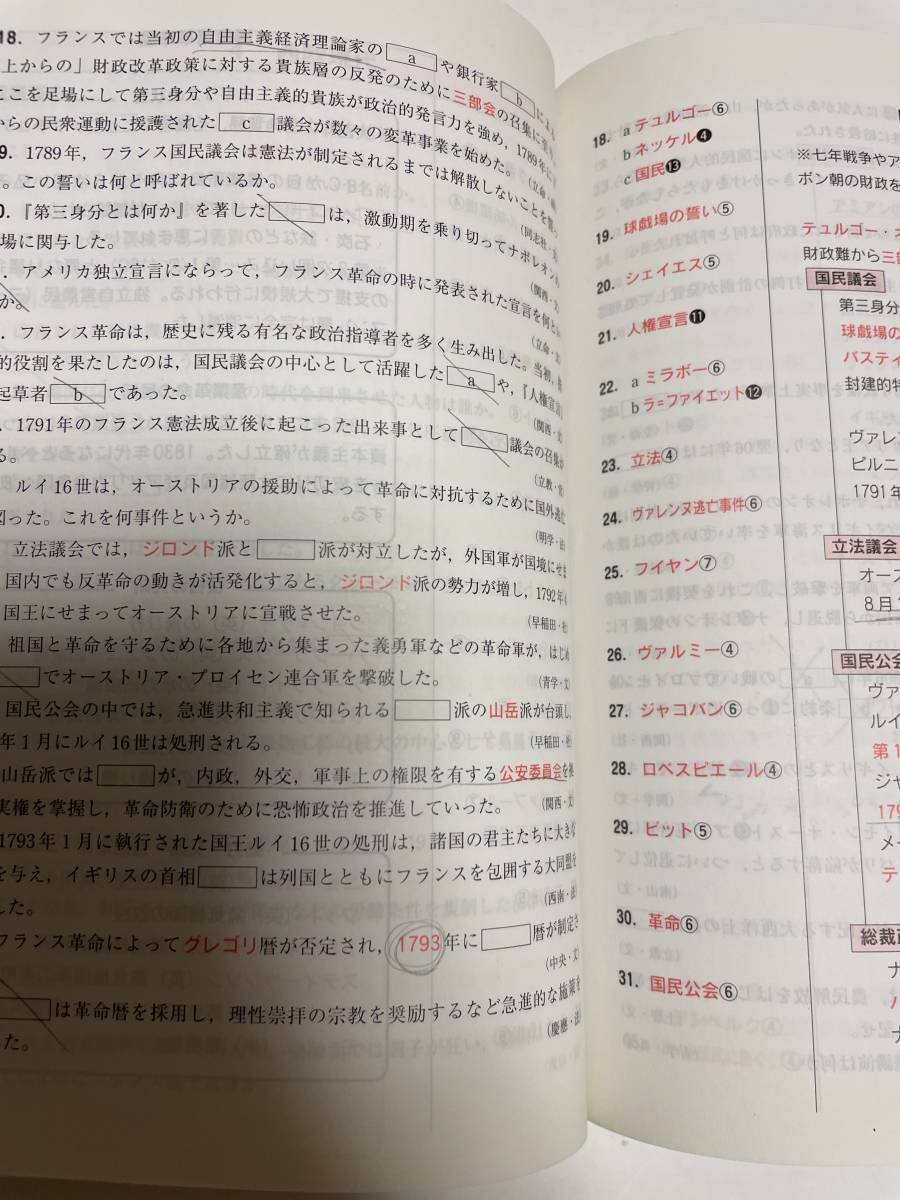 18. フランスでは当初の自由主義経済理論家の a や銀行家 b による
上からの」財政改革政策に対する貴族層の反発のために三部会の召集に
ここを足場にして第三身分や自由主義的貴族が政治的発言力を強め，1789年に
からの民衆運動に援護された c 議会が数々の変革事業を始めた。
9. 1789年，フランス国民議会は憲法が制定されるまでは解散しないことを
。この誓いは何と呼ばれているか。
0. 『第三身分とは何か』を著した は，激動期を乗り切ってナポレオン
場に関与した。 (関西・文)
. アメリカ独立宣言にならって，フランス革命の時に発表された宣言を何と
か。 (立命・文)
. フランス革命は，歴史に残る有名な政治指導者を多く生み出した。当初，
的役割を果たしたのは，国民議会の中心として活躍した a や，『人権宣言』
起草者 b であった。 (関西・文)
. 1791年のフランス憲法成立後に起こった出来事として 議会の召集が
る。
ルイ16世は，オーストリアの援助によって革命に対抗するために国外逃亡
図った。これを何事件というか。 (明学・法)
立法議会では，ジロンド派と 派が対立したが，外国軍が国境にせま
国内でも反革命の動きが活発化すると，ジロンド派の勢力が増し，1792年
国王にせまってオーストリアに宣戦させた。 (早稲田・社)
祖国と革命を守るために各地から集まった義勇軍などの革命軍が，はじめ
でオーストリア・プロイセン連合軍を撃破した。 (青学・文)
国民公会の中では，急進共和主義で知られる 派の山岳派が台頭し，
年1月にルイ16世は処刑される。 (早稲田・社)
山岳派では が，内政，外交，軍事上の権限を有する公安委員会を
実権を掌握し，革命防衛のために恐怖政治を推進していった。 (関西・文)
1793年1月に執行された国王ルイ16世の処刑は，諸国の君主たちに大きな
を与え，イギリスの首相 は列国とともにフランスを包囲する大同盟を
した。 (西南・法)
フランス革命によってグレゴリ暦が否定され，1793年に 暦が制定さ
(中央・文)
は革命暦を採用し，理性崇拝の宗教を奨励するなど急進的な施策を
した。 (慶應・法)
18. a テュルゴー⑥
b ネッケル❹
c 国民⓭
19. 球戯場の誓い⑤
20. シェイエス⑤
21. 人権宣言⓫
22. a ミラボー⑥
b ラ=ファイエット⓬
23. 立法④
24. ヴァレンヌ逃亡事件⑥
25. フイヤン⑦
26. ヴァルミー④
27. ジャコバン⑥
28. ロベスピエール④
29. ピット⑤
30. 革命⑥
31. 国民公会⑥
※七年戦争やア
ボン朝の財政を
テュルゴー・ネ
財政難から三部
国民議会
第三身分
球戯場の
バスティ
封建的特
ヴァレン
ピルニ
1791年
立法議会
オース
8月
国民公会
ヴァ
ルイ
第1
ジャ
179
メー
テ
総裁政
ナ
バ
ナ